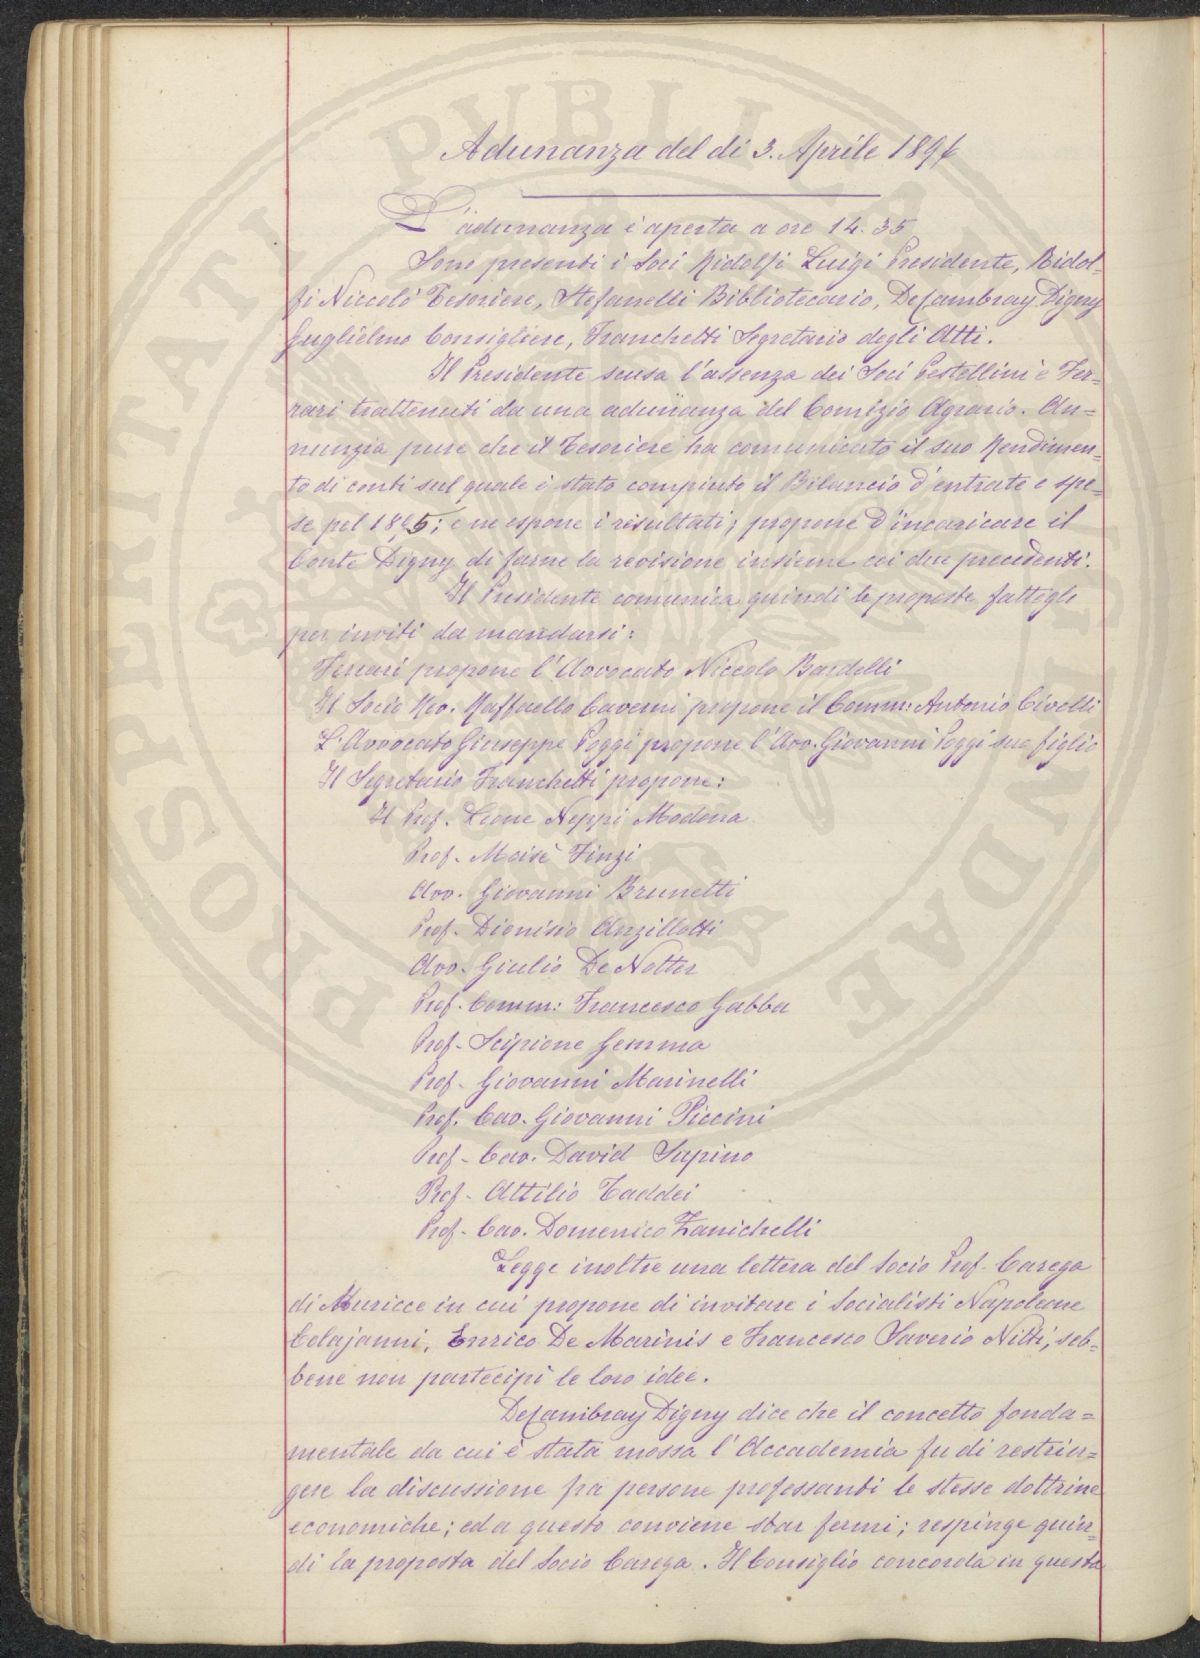 PROSPERITATI PUBLICAE AUGENDAE
Adunanza del dì 3. Aprile 1896
L'adunanza è aperta a ore 14.35
Sono presenti i Soci Ridolfi Luigi Presidente, Ridol=
fi Niccolò Tesoriere, Stefanelli Bibliotecario, DeCambray Digny
Guglielmo Consigliere, Franchetti Segretario degli Atti.
Il Presidente scusa l'assenza dei Soci Pestellini e Fer=
rari trattenuti da una adunanza del Comizio Agrario. An=
nunzia pure che il Tesoriere ha comunicato il suo Rendimen=
to di conti sul quale è stato compiuto il Bilancio d'entrate e spe=
se pel 1895; e ne espone i risultati; propone d'incaricare il
Conte Digny di farne la revisione insieme coi due precedenti.
Il Presidente comunica quindi le proposte fattegli
per inviti da mandarsi:
Ferrari propone l'Avvocato Niccolò Bardelli
Il Socio Rev. Raffaello Caverni propone il Comm: Antonio Civelli
L'Avvocato Giuseppe Poggi propone l'Avv. Giovanni Poggi suo figlio
Il Segretario Franchetti propone:
Il Prof. Leone Neppi Modona
Prof. Moisè Finzi
Avv. Giovanni Brunetti
Prof. Dionisio Anzillotti
Avv. Giulio De Notter
Prof. Comm: Francesco Gabba
Prof. Scipione Gemma
Prof. Giovanni Marinelli
Prof. Cav. Giovanni Piccini
Prof. Cav. David Supino
Prof. Attilio Taddei
Prof. Cav. Domenico Zanichelli
Legge inoltre una lettera del Socio Prof. Carega
di Muricce in cui propone di invitare i Socialisti Napoleone
Colajanni, Enrico De Marinis e Francesco Saverio Nitti, seb=
bene non partecipi le loro idee.
DeCambray Digny dice che il concetto fonda=
mentale da cui è stata mossa l'Accademia fu di restrin=
gere la discussione fra persone professanti le stesse dottrine
economiche; ed a questo conviene star fermi; respinge quin=
di la proposta del Socio Carega. Il Consiglio concorda in questa